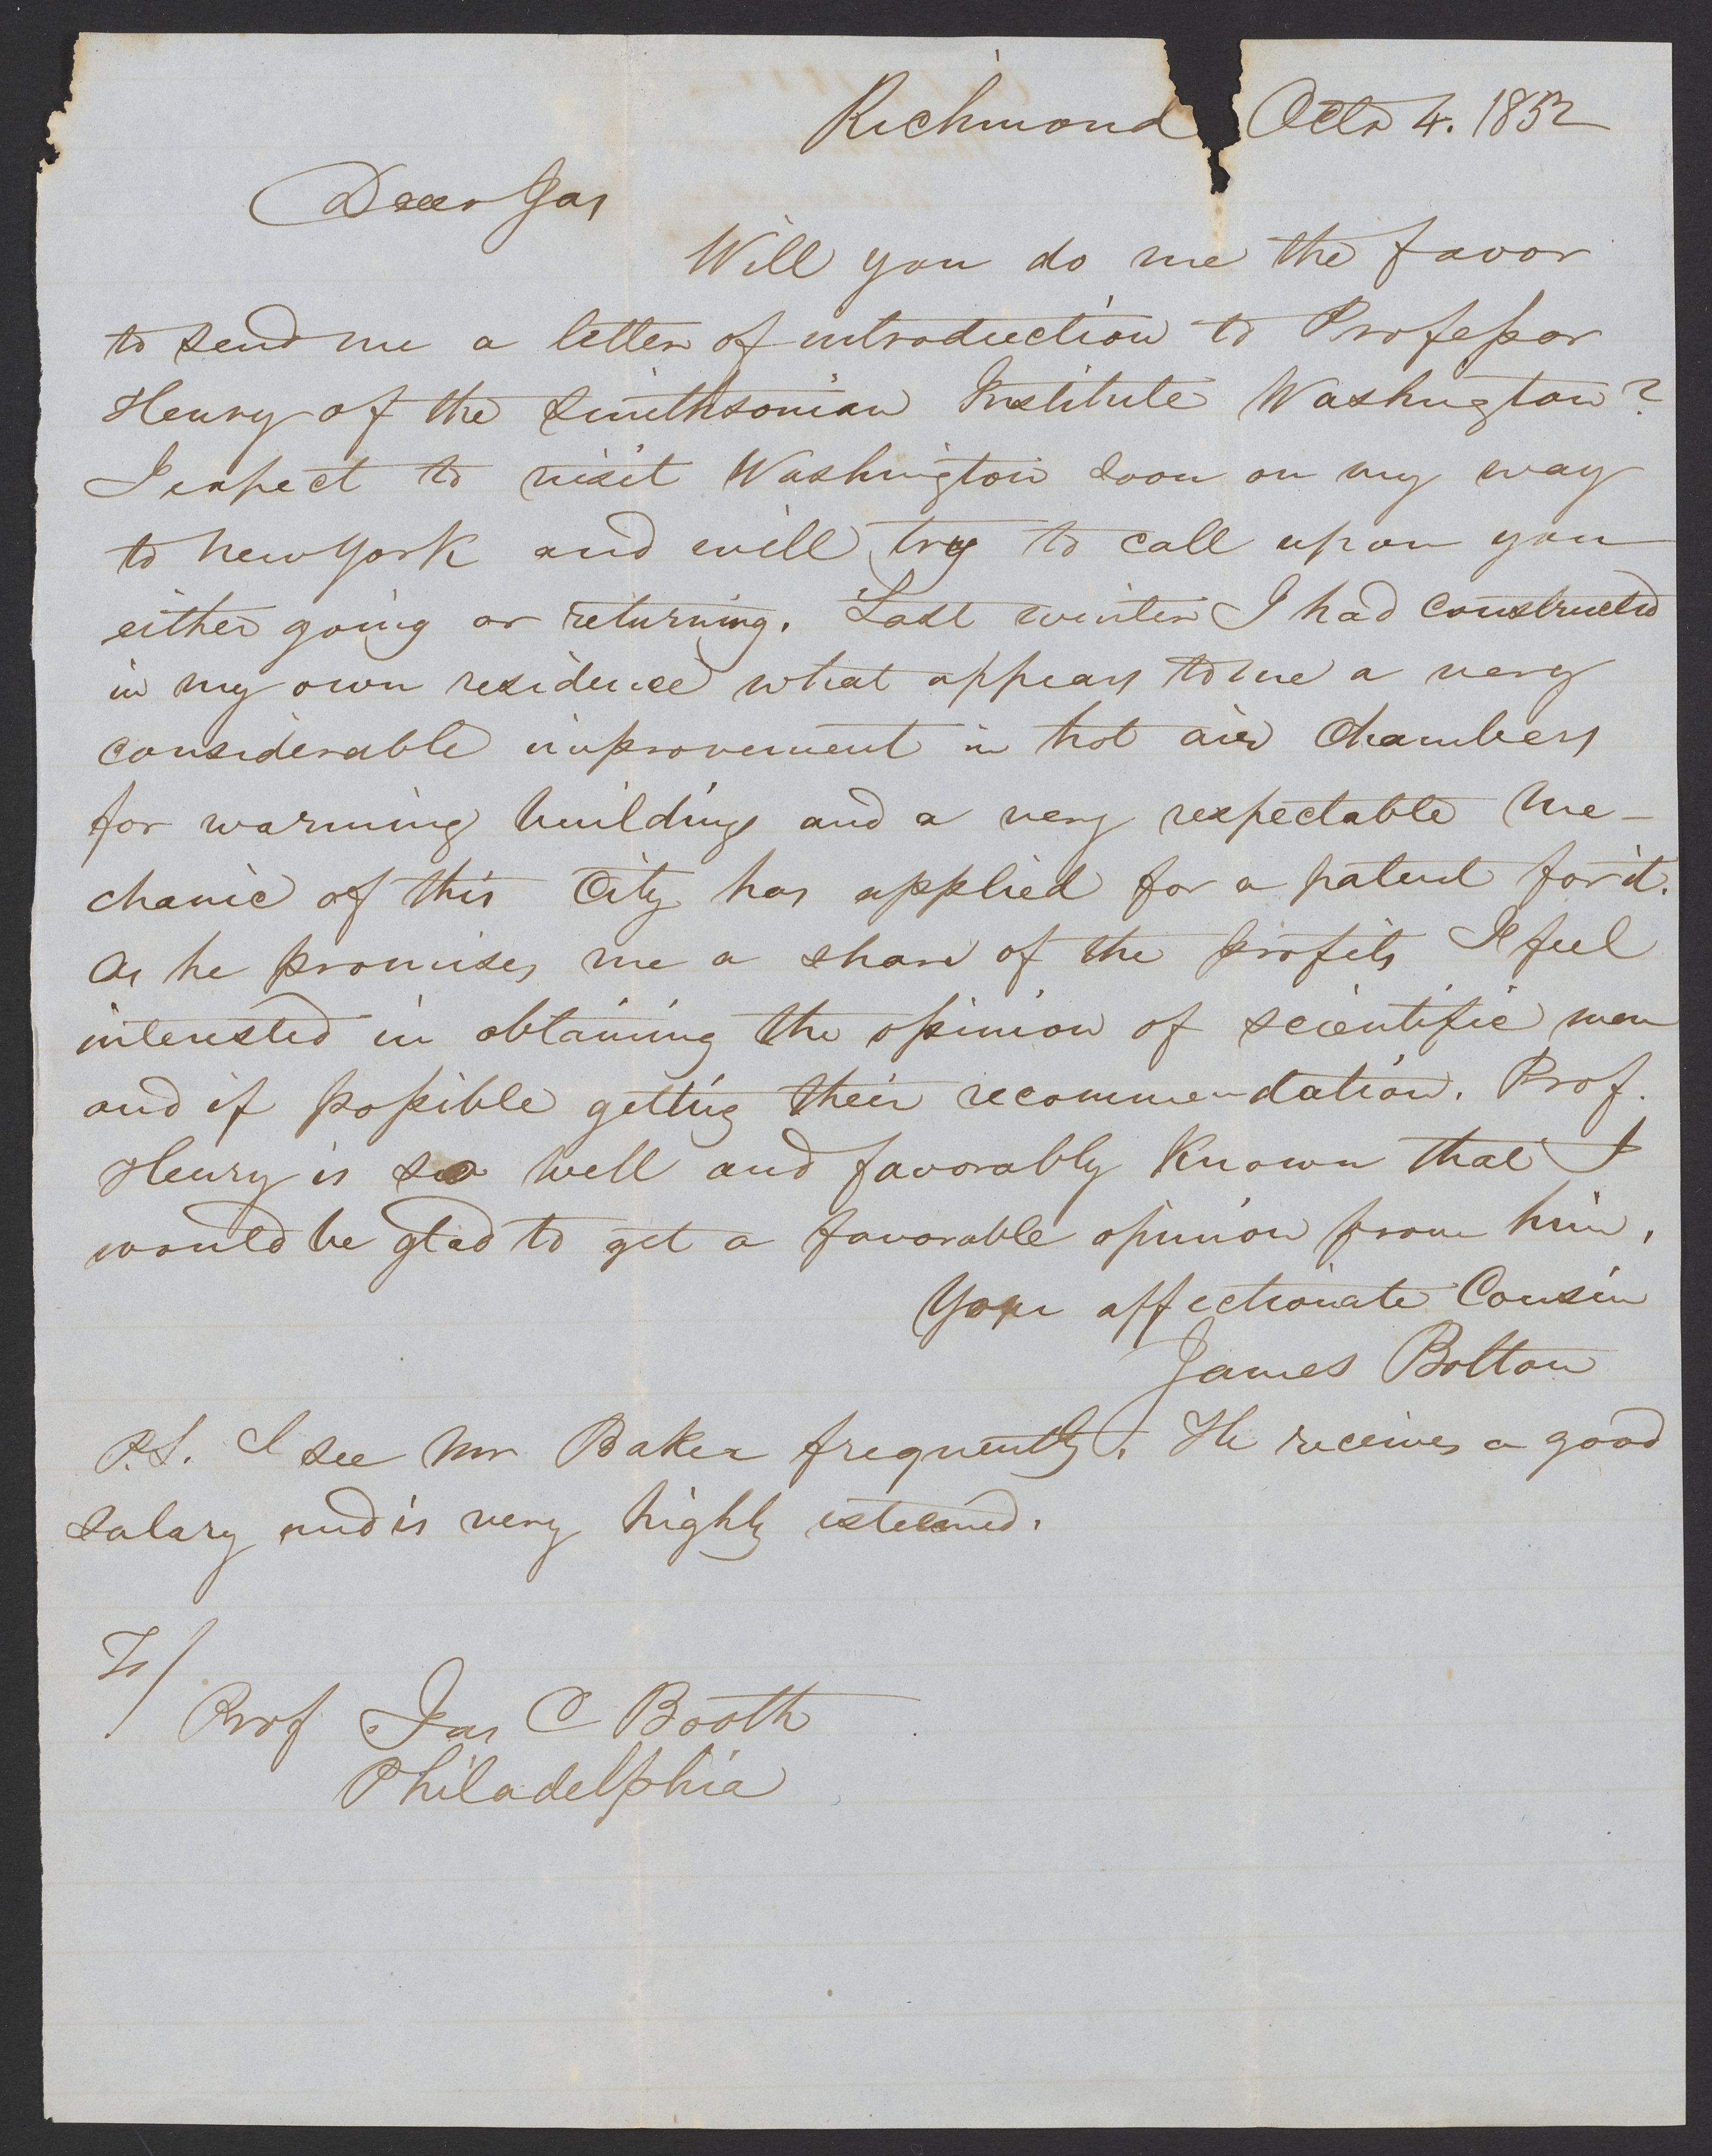 Richmond Octr 4. 1852
Dear Jas
Will you do me the favor
to send me a letter of introduction to Professor
Henry of the Smithsonian Institute Washington?
I expect to visit Washington soon on my way
to New York and will try to call upon you
either going or returning. Last winter I had constructed
in my own residence what appears to me a very
considerable improvement in hot air Chambers
for warming buildings and a very respectable me-
chanic of this City has applied for a patent for it.
As he promises me a share of the profits I feel
interested in obtaining the opinion of scientific men
and if possible getting their recommendation. Prof.
Henry is so well and favorably Known that I
would be glad to get a favorable opinion from him.
Your affectionate Cousin
James Bolton
P.S. I see Mr Baker frequently. He receives a good
salary and is very highly esteemed.
To/
Prof Jas C Booth
Philadelphia